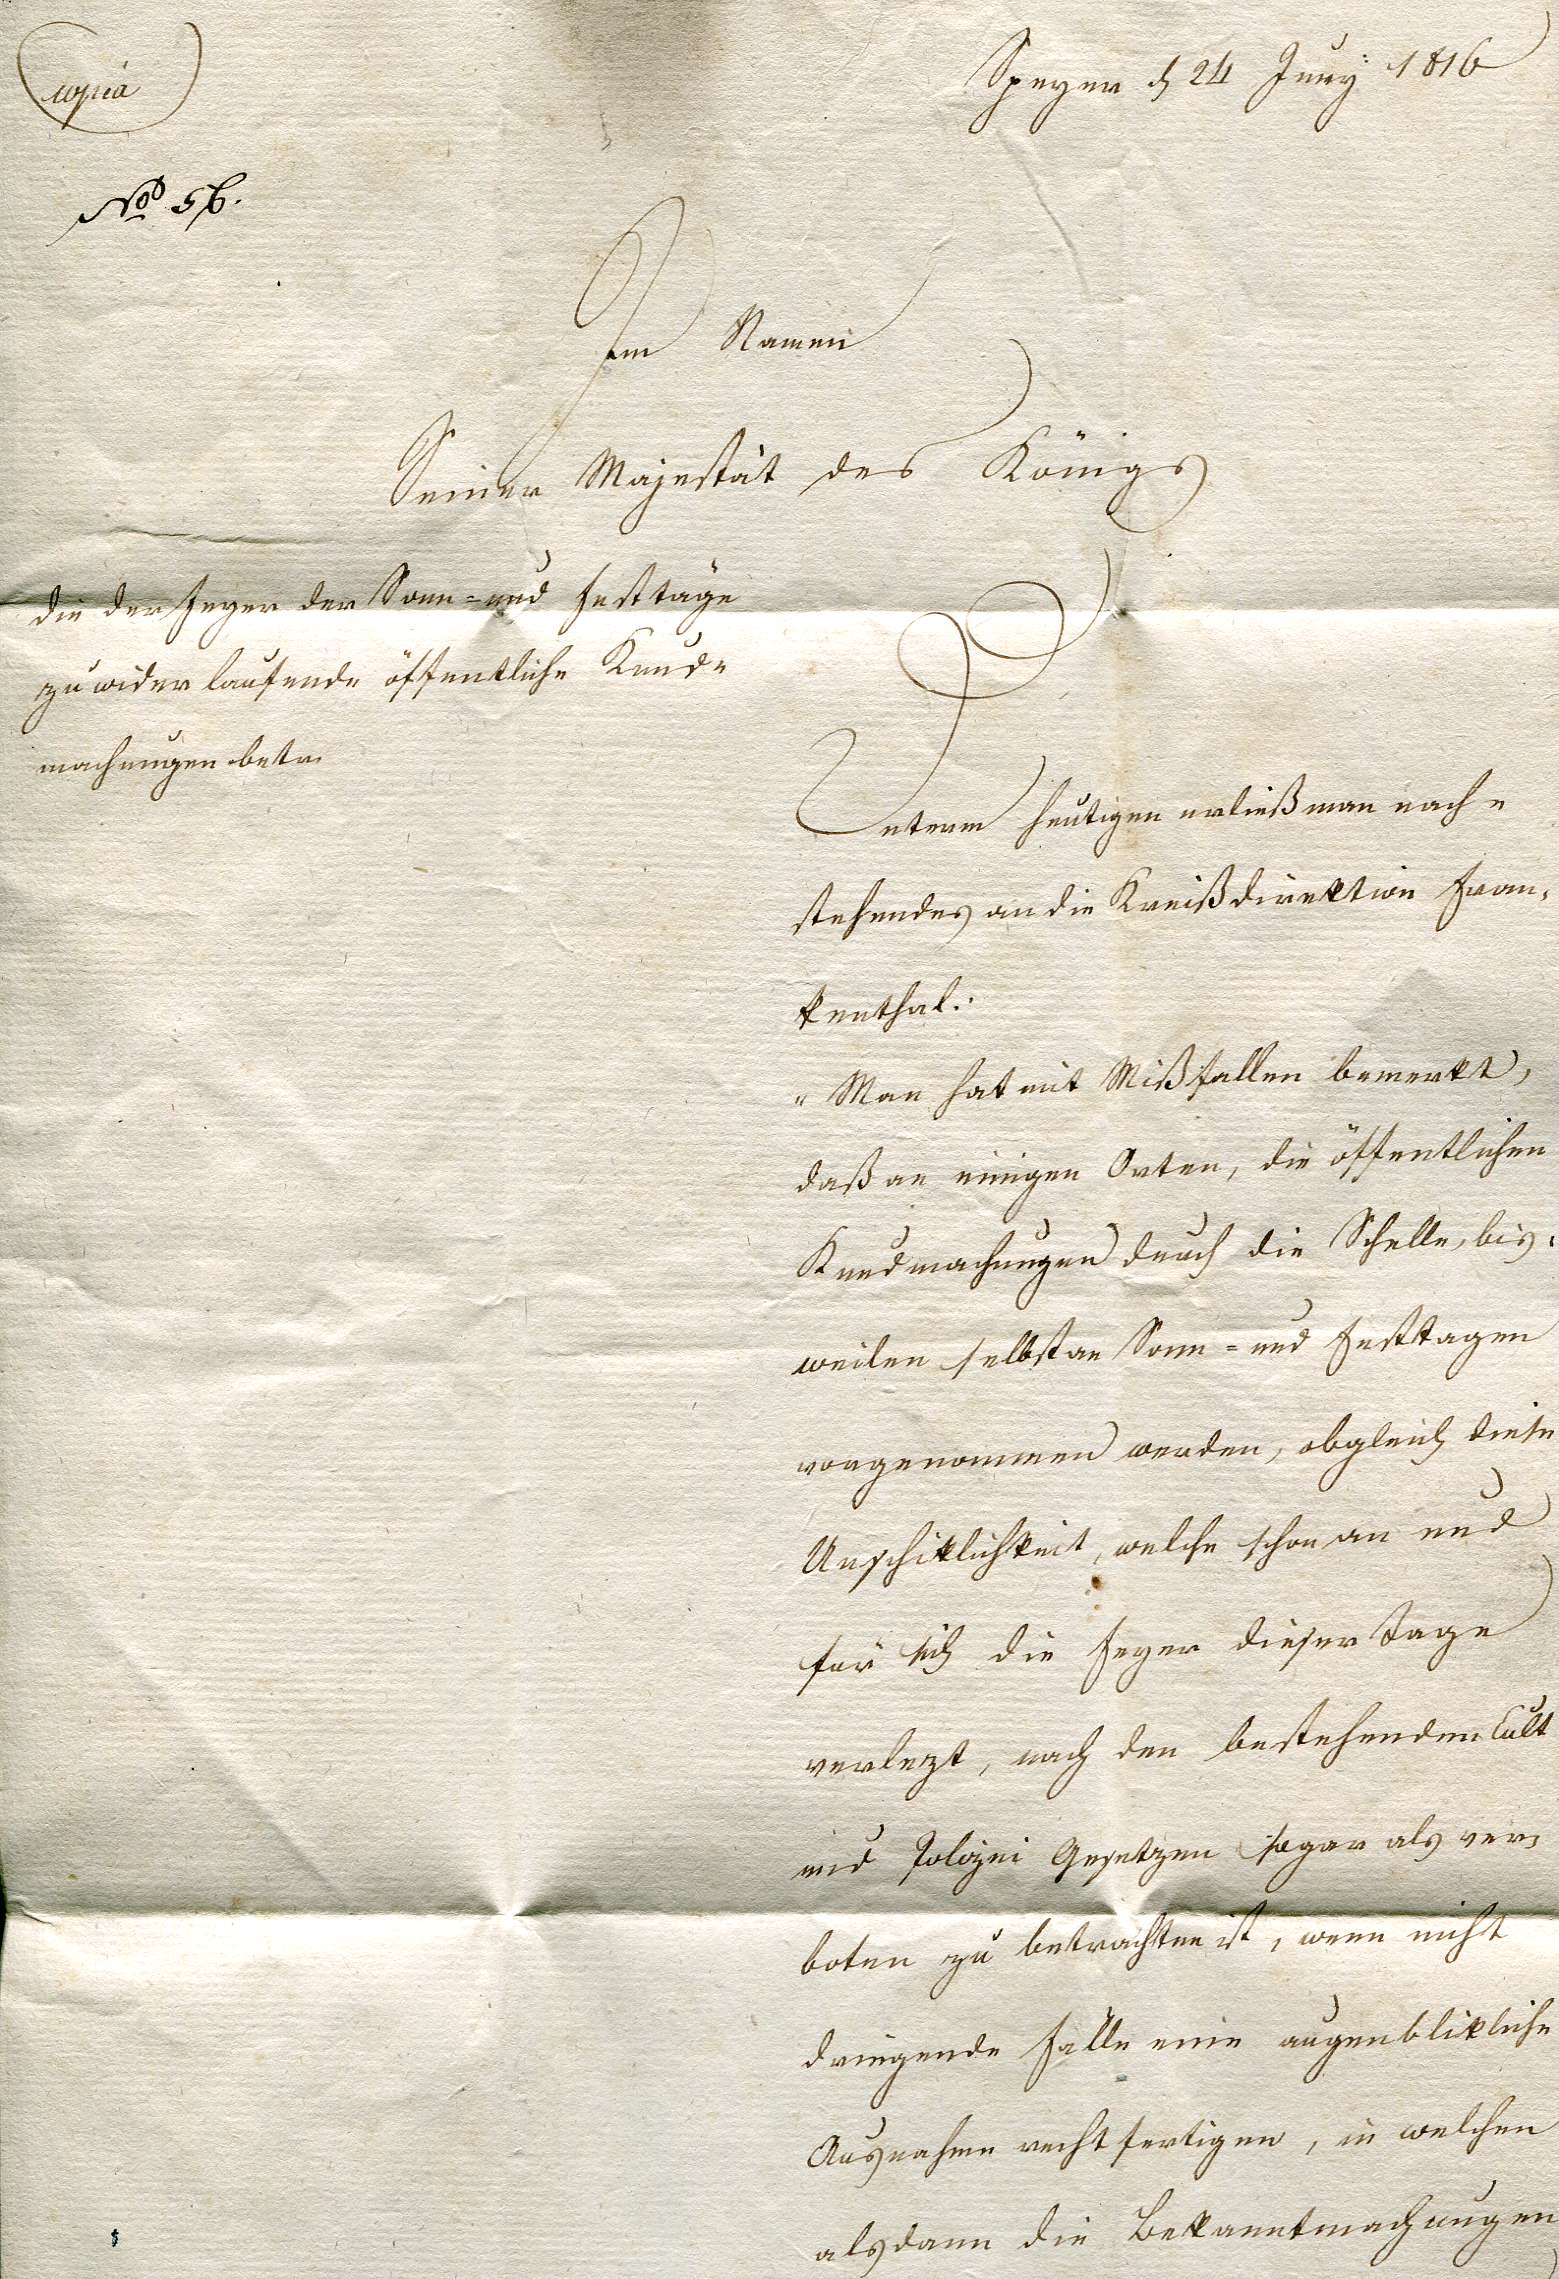 copia
Speyer d 24 Juny 1816
No 56.
Im Namen
Seiner Majestät des Königs
die der Feyer der Sonn= und Festtäge
zuwider laufende öffentliche Kund=
machungen betr.
Unterm heutigen erließ man nach=
stehendes an die Kreißdirektion Fran=
kenthal:
"Man hat mit Mißfallen bemerkt,
daß an einigen Orten, die öffentlichen
Kundmachungen durch die Schelle, bis=
weilen selbst an Sonn= und Festtagen
vorgenommen werden, obgleich diese
Unschiklichkeit, welche schon an und
für sich die Feyer dieser Tage
verlezt, nach den bestehenden Cult
und Polizei Gesetzen sogar als ver=
boten zu betrachten ist, wenn nicht
dringende Fälle eine augenblikliche
Ausnahme rechtfertigen, in welchen
alsdann die Bekanntmachungen